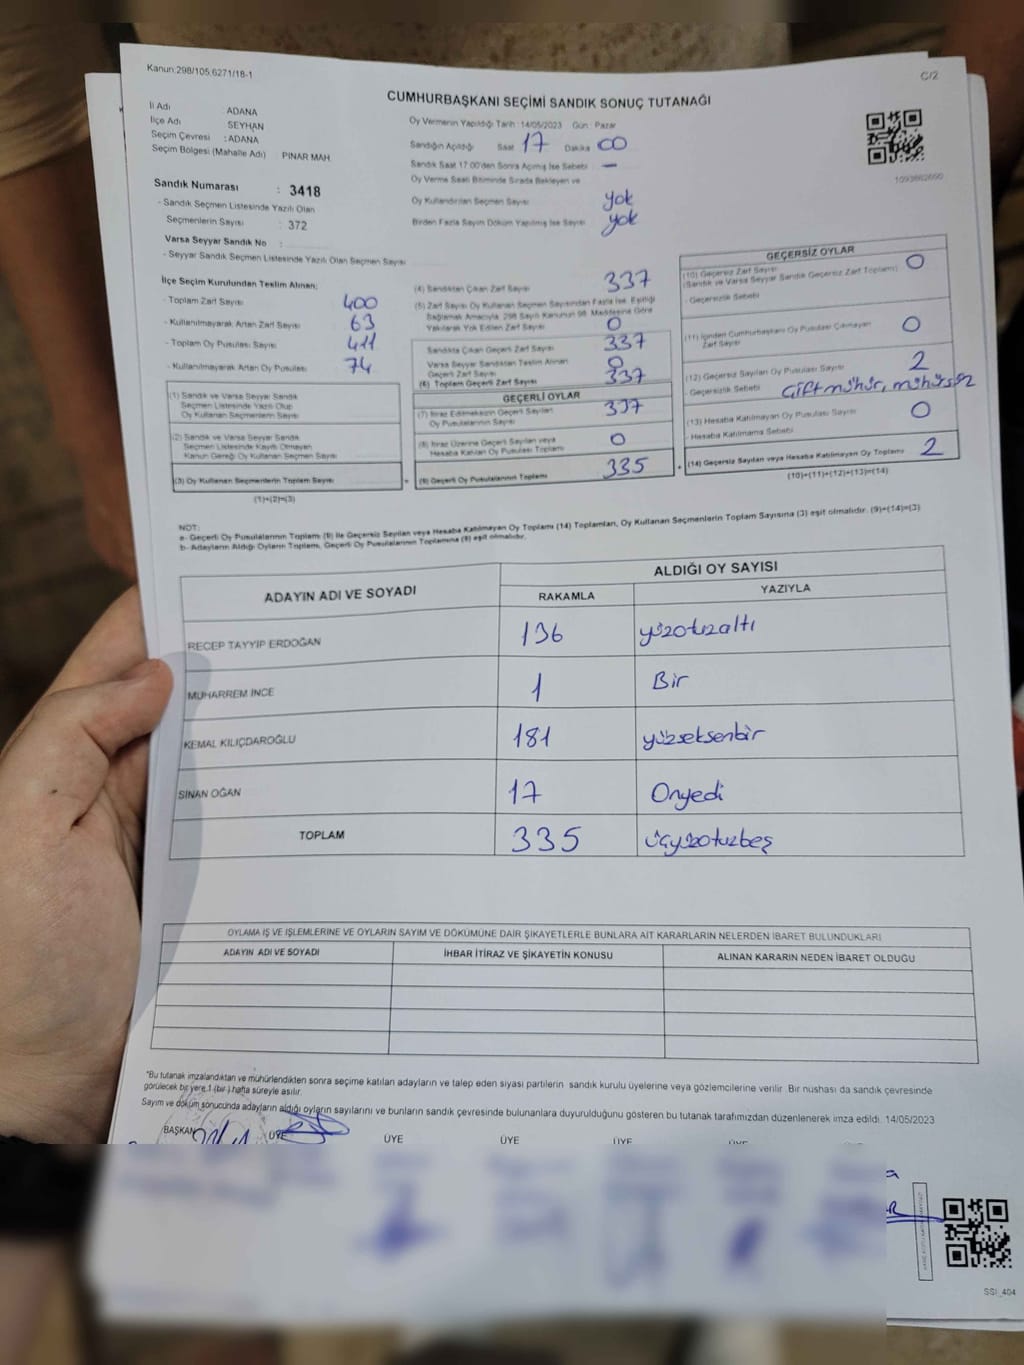 Kanun:298/105,6271/18-1
C/2
CUMHURBAŞKANI SEÇİMİ SANDIK SONUÇ TUTANAĞI
İl Adı : ADANA
İlçe Adı : SEYHAN
Seçim Çevresi : ADANA
Seçim Bölgesi (Mahalle Adı) : PINAR MAH.
Oy Vermenin Yapıldığı Tarih : 14/05/2023 Gün : Pazar
Sandığın Açıldığı Saat 17 Dakika 00
Sandık Saat 17:00'den Sonra Açılmış İse Sebebi —
Oy Verme Saati Bitiminde Sırada Bekleyen ve
Oy Kullandırılan Seçmen Sayısı yok
Birden Fazla Sayım Döküm Yapılmış İse Sayısı yok
1093662690
Sandık Numarası : 3418
- Sandık Seçmen Listesinde Yazılı Olan
Seçmenlerin Sayısı : 372
Varsa Seyyar Sandık No :
- Seyyar Sandık Seçmen Listesinde Yazılı Olan Seçmen Sayısı
İlçe Seçim Kurulundan Teslim Alınan;
- Toplam Zarf Sayısı 400
- Kullanılmayarak Artan Zarf Sayısı 63
- Toplam Oy Pusulası Sayısı 411
- Kullanılmayarak Artan Oy Pusulası 74
(1) Sandık ve Varsa Seyyar Sandık
Seçmen Listesinde Yazılı Olup
Oy Kullanan Seçmenlerin Sayısı
(2) Sandık ve Varsa Seyyar Sandık
Seçmen Listesinde Kayıtlı Olmayan
Kanun Gereği Oy Kullanan Seçmen Sayısı
(3) Oy Kullanan Seçmenlerin Toplam Sayısı
(1)+(2)=(3)
(4) Sandıktan Çıkan Zarf Sayısı 337
(5) Zarf Sayısı Oy Kullanan Seçmen Sayısından Fazla İse, Eşitliği
Sağlamak Amacıyla, 298 Sayılı Kanunun 98. Maddesine Göre
Yakılarak Yok Edilen Zarf Sayısı 0
Sandıkta Çıkan Geçerli Zarf Sayısı 337
Varsa Seyyar Sandıktan Teslim Alınan
Geçerli Zarf Sayısı 0
(6) Toplam Geçerli Zarf Sayısı 337
GEÇERLİ OYLAR
(7) İtiraz Edilmeksizin Geçerli Sayılan
Oy Pusulalarının Sayısı 337
(8) İtiraz Üzerine Geçerli Sayılan veya
Hesaba Katılan Oy Pusulası Toplamı 0
(9) Geçerli Oy Pusulalarının Toplamı 335
GEÇERSİZ OYLAR
(10) Geçersiz Zarf Sayısı 0
(Sandık ve Varsa Seyyar Sandık Geçersiz Zarf Toplamı)
- Geçersizlik Sebebi
(11) İçinden Cumhurbaşkanı Oy Pusulası Çıkmayan
Zarf Sayısı 0
(12) Geçersiz Sayılan Oy Pusulası Sayısı 2
- Geçersizlik Sebebi Çift mühür, mühürsüz
(13) Hesaba Katılmayan Oy Pusulası Sayısı 0
- Hesaba Katılmama Sebebi
(14) Geçersiz Sayılan veya Hesaba Katılmayan Oy Toplamı 2
(10)+(11)+(12)+(13)=(14)
NOT:
a- Geçerli Oy Pusulalarının Toplamı (9) ile Geçersiz Sayılan veya Hesaba Katılmayan Oy Toplamı (14) Toplamları, Oy Kullanan Seçmenlerin Toplam Sayısına (3) eşit olmalıdır. (9)+(14)=(3)
b- Adayların Aldığı Oyların Toplamı, Geçerli Oy Pusulalarının Toplamına (9) eşit olmalıdır.
ADAYIN ADI VE SOYADI
ALDIĞI OY SAYISI
RAKAMLA YAZIYLA
RECEP TAYYİP ERDOĞAN 136 yüzotuzaltı
MUHARREM İNCE 1 Bir
KEMAL KILIÇDAROĞLU 181 yüzseksenbir
SİNAN OĞAN 17 Onyedi
TOPLAM 335 üçyüzotuzbeş
OYLAMA İŞ VE İŞLEMLERİNE VE OYLARIN SAYIM VE DÖKÜMÜNE DAİR ŞİKAYETLERLE BUNLARA AİT KARARLARIN NELERDEN İBARET BULUNDUKLARI
ADAYIN ADI VE SOYADI İHBAR İTİRAZ VE ŞİKAYETİN KONUSU ALINAN KARARIN NEDEN İBARET OLDUĞU
"Bu tutanak imzalandıktan ve mühürlendikten sonra seçime katılan adayların ve talep eden siyasi partilerin sandık kurulu üyelerine veya gözlemcilerine verilir. Bir nüshası da sandık çevresinde
görülecek bir yere 1 (bir) hafta süreyle asılır.
Sayım ve döküm sonucunda adayların aldığı oyların sayılarını ve bunların sandık çevresinde bulunanlara duyurulduğunu gösteren bu tutanak tarafımızdan düzenlenerek imza edildi. 14/05/2023
BAŞKAN ÜYE ÜYE ÜYE ÜYE ÜYE
SSİ_404